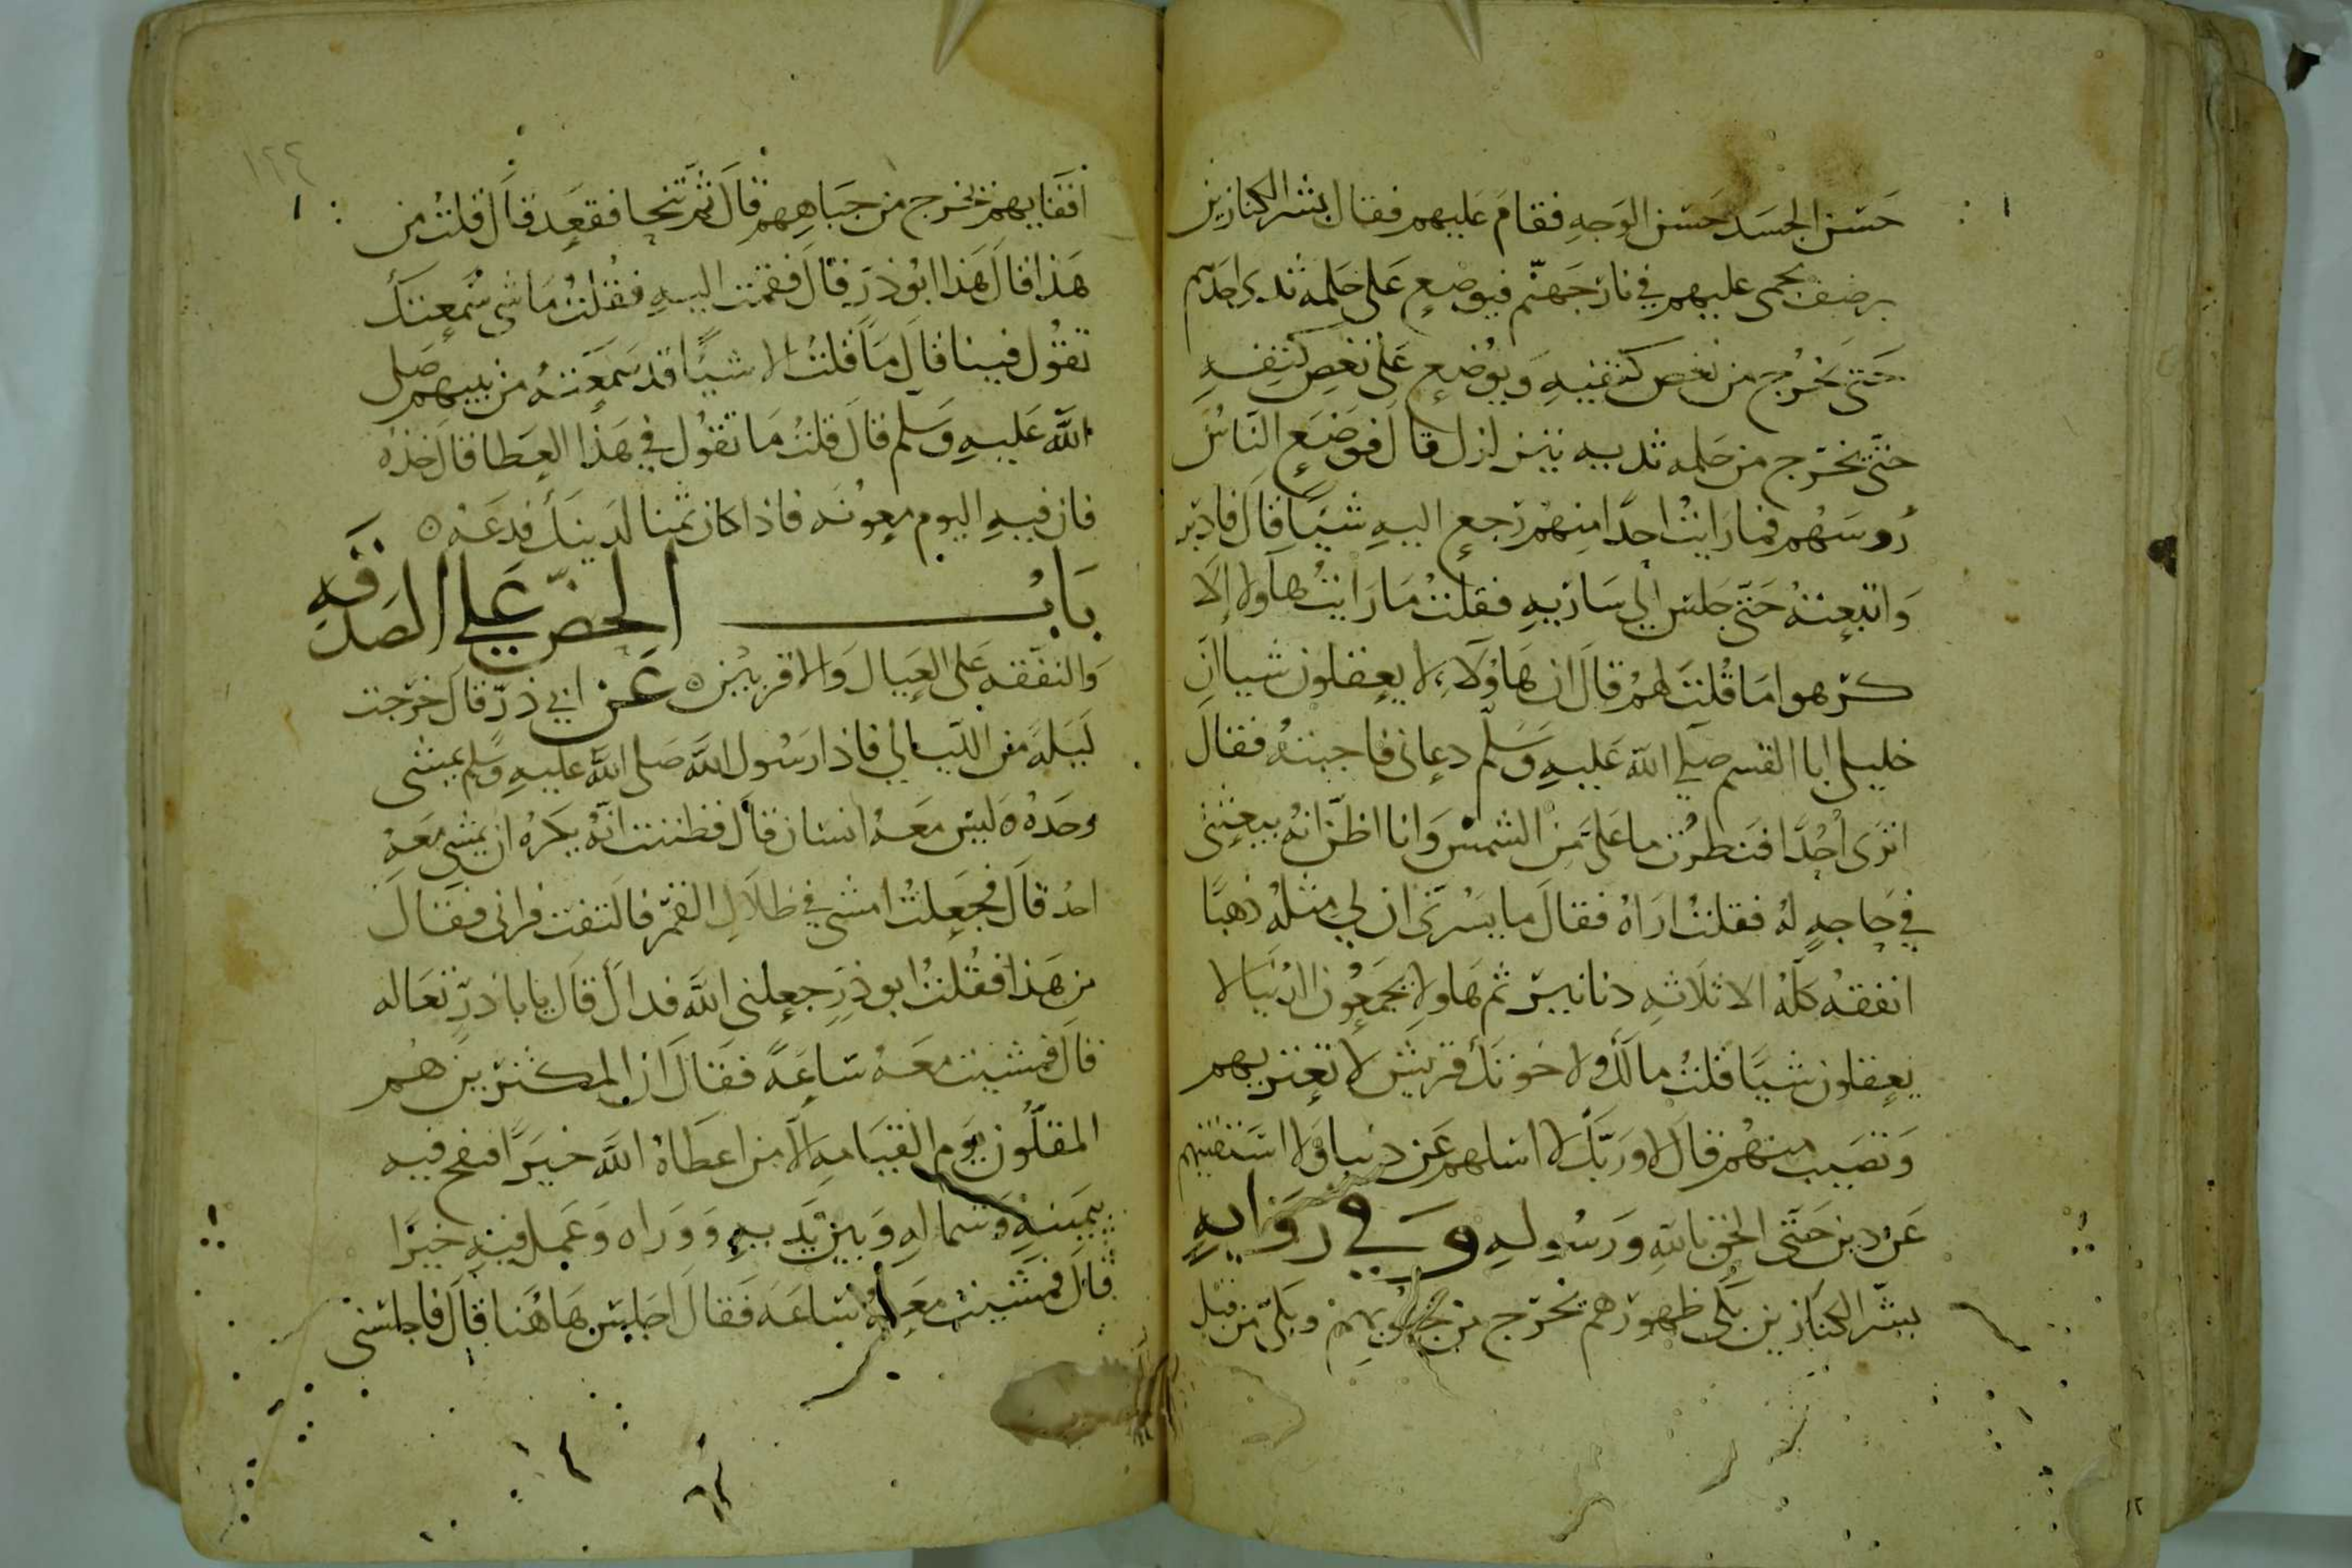 حسن الجسد حسن الوجه فقام عليهم فقال بشر الكنازين
برضف يحمى عليهم في نار جهنم فيوضع على حلمه ثدي احدهم
حتى يخرج من نغض كتفيه ويوضع على نغض كتفه
حتى يخرج من حلمه ثدييه يتزلزل قال فوضع الناس
روسهم فما رايت احدا منهم رجع اليه شيا قال فادبر
واتبعته حتى جلس الي ساريه فقلت ما رايت هاولا إلا
كرهوا ما قلت لهم قال ان هاولاء لا يعقلون شيا ان
خليلي ابا القسم صلي الله عليه وسلم دعاني فاجبته فقال
اترى احدا فنظرت ما على من الشمس وانا اظن انه يبعثني
في حاجه له فقلت اراه فقال ما يسرني ان لي مثله ذهبا
انفقه كله الا ثلاثه دنانير ثم هاولا يجمعون الدنيا لا
يعقلون شيا قلت مالك ولا خوتك قريش لا تعتريهم
وتصيب منهم قال لا وربك لا اسلهم عن دنيا ولا استفتيهم
عن دين حتى الحق بالله ورسوله وفي روايه
بشر الكنازين بكي ظهورهم تخرج من جنوبهم وبكي من قبل
١٢٢
اقفايهم تخرج من جباههم قال ثم تنحا فقعد قال قلت من
هذا قال هذا ابو ذر قال فقمت اليه فقلت ما شي سمعتك
تقول فينا قال ما قلت الا شيا قد سمعته من نبيهم صلي
الله عليه وسلم قال قلت ما تقول في هذا العطا قال خذه
فان فيه اليوم معونه فاذا كان ثمنا لدينك فدعه ٥
باب الحض علي الصدقه
والنفقه على العيال والاقربين ٥ عن ابي ذر قال خرجت
ليله من الليالي فاذا رسول الله صلى الله عليه وسلم يمشى
وحده ٥ ليس معه انسان قال فظننت انه يكره ان يمشي معه
احد قال فجعلت امشي في ظلال القمر فالتفت فراني فقال
من هذا فقلت ابو ذر جعلني الله فداك قال يا با ذر تعاله
قال فمشيت معه ساعه فقال ان المكثرين هم
المقلون يوم القيامه الا من اعطاه الله خيرا فنفح فيه
يمينه وشماله وبين يديه ووراه وعمل فيه خيرا
قال فمشيت معه ساعه فقال اجلس هاهنا قال فاجلسني